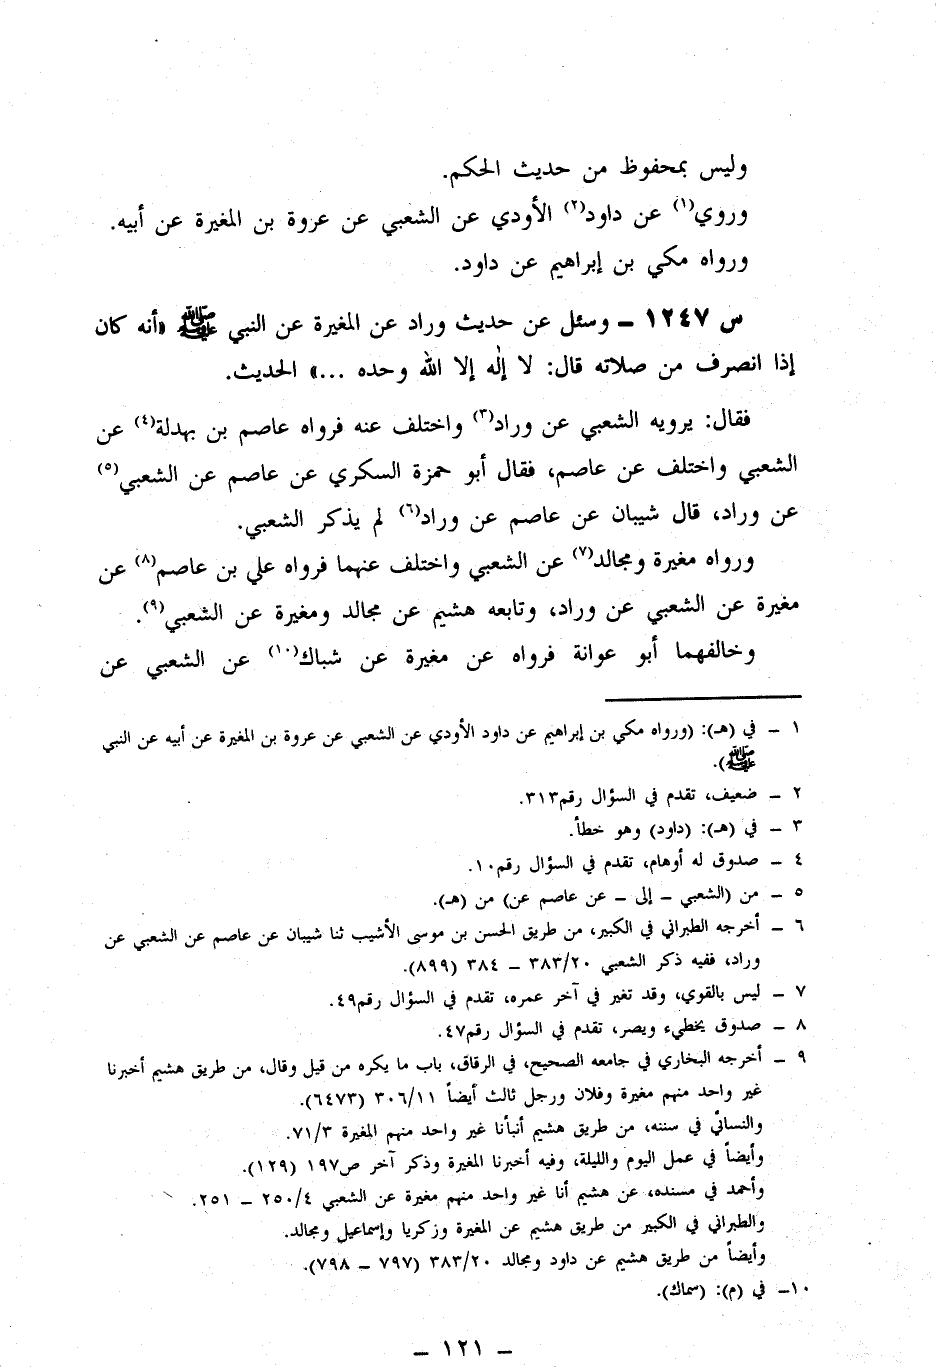 وليس بمحفوظ من حديث الحكم.
وروي(١) عن داود(٢) الأودي عن الشعبي عن عروة بن المغيرة عن أبيه.
ورواه مكي بن إبراهيم عن داود.
س ١٢٤٧ ــ وسئل عن حديث وراد عن المغيرة عن النبي ﷺ «أنه كان
إذا انصرف من صلاته قال: لا إلٰه إلا الله وحده ...» الحديث.
فقال: يرويه الشعبي عن وراد(٣) واختلف عنه فرواه عاصم بن بهدلة(٤) عن
الشعبي واختلف عن عاصم، فقال أبو حمزة السكري عن عاصم عن الشعبي(٥)
عن وراد، قال شيبان عن عاصم عن وراد(٦) لم يذكر الشعبي.
ورواه مغيرة ومجالد(٧) عن الشعبي واختلف عنهما فرواه علي بن عاصم(٨) عن
مغيرة عن الشعبي عن وراد، وتابعه هشيم عن مجالد ومغيرة عن الشعبي(٩).
وخالفهما أبو عوانة فرواه عن مغيرة عن شباك(١٠) عن الشعبي عن
١ ــ في (هـ): (ورواه مكي بن إبراهيم عن داود الأودي عن الشعبي عن عروة بن المغيرة عن أبيه عن النبي
ﷺ).
٢ ــ ضعيف، تقدم في السؤال رقم٣١٣.
٣ ــ في (هـ): (داود) وهو خطأ.
٤ ــ صدوق له أوهام، تقدم في السؤال رقم١٠.
٥ ــ من (الشعبي ــ إلى ــ عن عاصم عن) من (هـ).
٦ ــ أخرجه الطبراني في الكبير، من طريق الحسن بن موسى الأشيب ثنا شيبان عن عاصم عن الشعبي عن
وراد، ففيه ذكر الشعبي ٣٨٣/٢٠ ــ ٣٨٤ (٨٩٩).
٧ ــ ليس بالقوي، وقد تغير في آخر عمره، تقدم في السؤال رقم٤٩.
٨ ــ صدوق يخطيء ويصر، تقدم في السؤال رقم٤٧.
٩ ــ أخرجه البخاري في جامعه الصحيح، في الرقاق، باب ما يكره من قيل وقال، من طريق هشيم أخبرنا
غير واحد منهم مغيرة وفلان ورجل ثالث أيضاً ٣٠٦/١١ (٦٤٧٣).
والنسائي في سننه، من طريق هشيم أنبأنا غير واحد منهم المغيرة ٧١/٣.
وأيضاً في عمل اليوم والليلة، وفيه أخبرنا المغيرة وذكر آخر ص١٩٧ (١٢٩).
وأحمد في مسنده، عن هشيم أنا غير واحد منهم مغيرة عن الشعبي ٢٥٠/٤ ــ ٢٥١.
والطبراني في الكبير من طريق هشيم عن المغيرة وزكريا وإسماعيل ومجالد.
وأيضاً من طريق هشيم عن داود ومجالد ٣٨٣/٢٠ (٧٩٧ ــ ٧٩٨).
١٠ــ في (م): (سماك).
ــ ١٢١ ــ